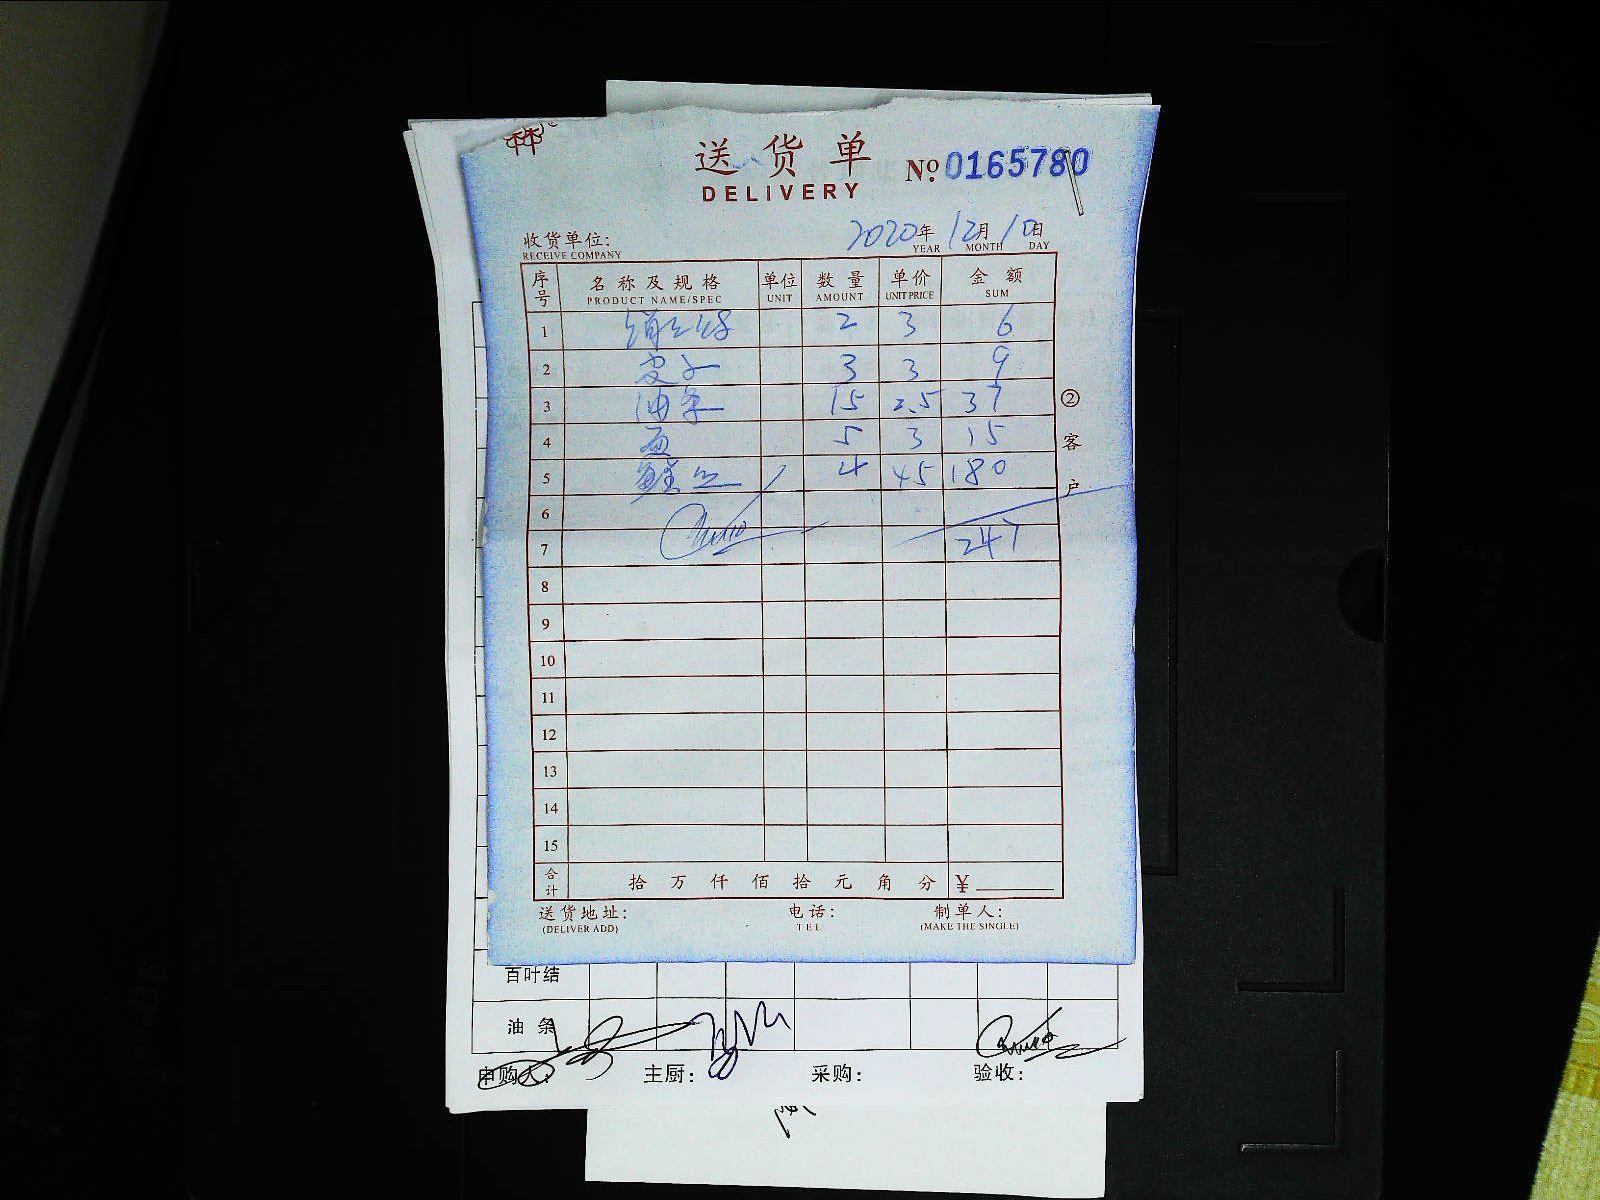 送货单
DELIVERY
No 0165780
2020年 12月 10日
YEAR MONTH DAY
收货单位:
RECEIVE COMPANY
序号 名称及规格 单位 数量 单价 金额
PRODUCT NAME/SPEC UNIT AMOUNT UNIT PRICE SUM
1 2 3 6
2 皮子 3 3 9
3 油条 15 2.5 37
4 5 3 15
5 4 45 180
6
7 247
8
9
10
11
12
13
14
15
② 客户
合计 拾 万 仟 佰 拾 元 角 分 ¥
送货地址: 电话: 制单人:
(DELIVER ADD) TEL (MAKE THE SINGLE)
百叶结
油条
申购人: 主厨: 采购: 验收: